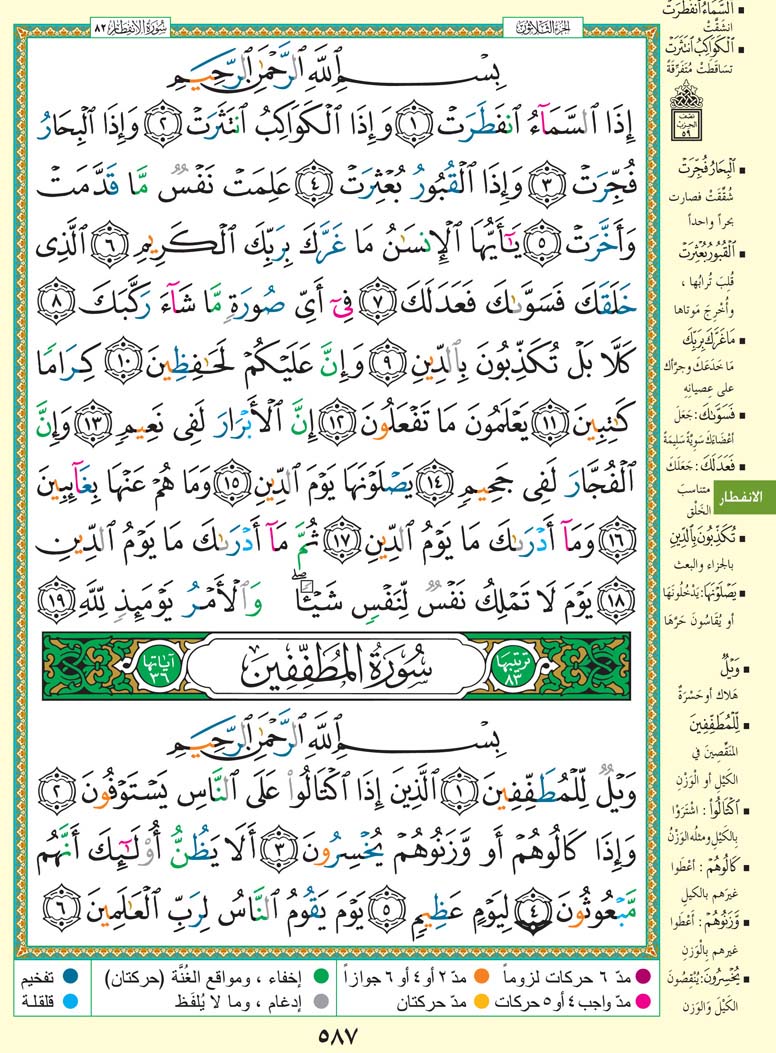 الجزء الثلاثون
سورة الانفطار ٨٢
بِسْمِ اللَّهِ الرَّحْمَٰنِ الرَّحِيمِ
إِذَا السَّمَآءُ انفَطَرَتْ ١ وَإِذَا الْكَوَاكِبُ انتَثَرَتْ ٢ وَإِذَا الْبِحَارُ
فُجِّرَتْ ٣ وَإِذَا الْقُبُورُ بُعْثِرَتْ ٤ عَلِمَتْ نَفْسٌ مَّا قَدَّمَتْ
وَأَخَّرَتْ ٥ يَٰٓأَيُّهَا الْإِنسَٰنُ مَا غَرَّكَ بِرَبِّكَ الْكَرِيمِ ٦ الَّذِى
خَلَقَكَ فَسَوَّىٰكَ فَعَدَلَكَ ٧ فِىٓ أَىِّ صُورَةٍ مَّا شَآءَ رَكَّبَكَ ٨
كَلَّا بَلْ تُكَذِّبُونَ بِالدِّينِ ٩ وَإِنَّ عَلَيْكُمْ لَحَٰفِظِينَ ١٠ كِرَامًا
كَٰتِبِينَ ١١ يَعْلَمُونَ مَا تَفْعَلُونَ ١٢ إِنَّ الْأَبْرَارَ لَفِى نَعِيمٍ ١٣ وَإِنَّ
الْفُجَّارَ لَفِى جَحِيمٍ ١٤ يَصْلَوْنَهَا يَوْمَ الدِّينِ ١٥ وَمَا هُمْ عَنْهَا بِغَآئِبِينَ
١٦ وَمَآ أَدْرَىٰكَ مَا يَوْمُ الدِّينِ ١٧ ثُمَّ مَآ أَدْرَىٰكَ مَا يَوْمُ الدِّينِ
١٨ يَوْمَ لَا تَمْلِكُ نَفْسٌ لِّنَفْسٍ شَيْـًٔا ۖ وَالْأَمْرُ يَوْمَئِذٍ لِّلَّهِ ١٩
ترتيبها ٨٣
سُورَةُ المُطَفِّفِينَ
آياتها ٣٦
بِسْمِ اللَّهِ الرَّحْمَٰنِ الرَّحِيمِ
وَيْلٌ لِّلْمُطَفِّفِينَ ١ الَّذِينَ إِذَا اكْتَالُوا۟ عَلَى النَّاسِ يَسْتَوْفُونَ ٢
وَإِذَا كَالُوهُمْ أَو وَّزَنُوهُمْ يُخْسِرُونَ ٣ أَلَا يَظُنُّ أُو۟لَٰٓئِكَ أَنَّهُم
مَّبْعُوثُونَ ٤ لِيَوْمٍ عَظِيمٍ ٥ يَوْمَ يَقُومُ النَّاسُ لِرَبِّ الْعَٰلَمِينَ ٦
السَّمَاءُ انفَطَرَتْ
انشَقَّتْ
الْكَوَاكِبُ انتَثَرَتْ
تساقَطَتْ مُتَفَرِّقَةً
نصف
الحزب
٥٩
الْبِحَارُ فُجِّرَتْ
شُقِّقَتْ فصارت
بحراً واحداً
الْقُبُورُ بُعْثِرَتْ
قُلِبَ تُرابُها ،
وأُخْرِجَ مَوتاها
مَا غَرَّكَ بِرَبِّكَ
مَا خَدَعَكَ وجرَّأك
على عِصيانِهِ
فَسَوَّىٰكَ : جَعَلَ
أعضَاءَكَ سَوِيَّةً سَلِيمَةً
فَعَدَلَكَ : جَعَلَكَ
متناسبَ
الخَلْق
الانفطار
تُكَذِّبُونَ بِالدِّينِ
بالجزاء والبعث
يَصْلَوْنَهَا : يَدْخُلُونَهَا
أو يُقَاسُونَ حَرَّهَا
وَيْلٌ
هَلاك أو حَسْرَةٌ
لِّلْمُطَفِّفِينَ
المُنَقِّصِينَ في
الكَيْلِ أو الْوَزْنِ
اكْتَالُوا : اشتَرَوْا
بِالكَيْلِ ومثلُه الوَزْنُ
كَالُوهُمْ : أَعْطَوا
غيرَهم بالكيلِ
وَّزَنُوهُمْ : أَعْطَوا
غيرهم بِالْوَزنِ
يُخْسِرُونَ : يُنْقِصُونَ
الكَيْلَ وَالوَزن
مدّ ٦ حركات لزوماً
مدّ ٢ أو ٤ أو ٦ جوازاً
إخفاء ، ومواقع الغُنَّة (حركتان)
تفخيم
مدّ واجب ٤ أو ٥ حركات
مدّ حركتان
إدغام ، وما لا يُلفَظ
قلقلة
٥٨٧